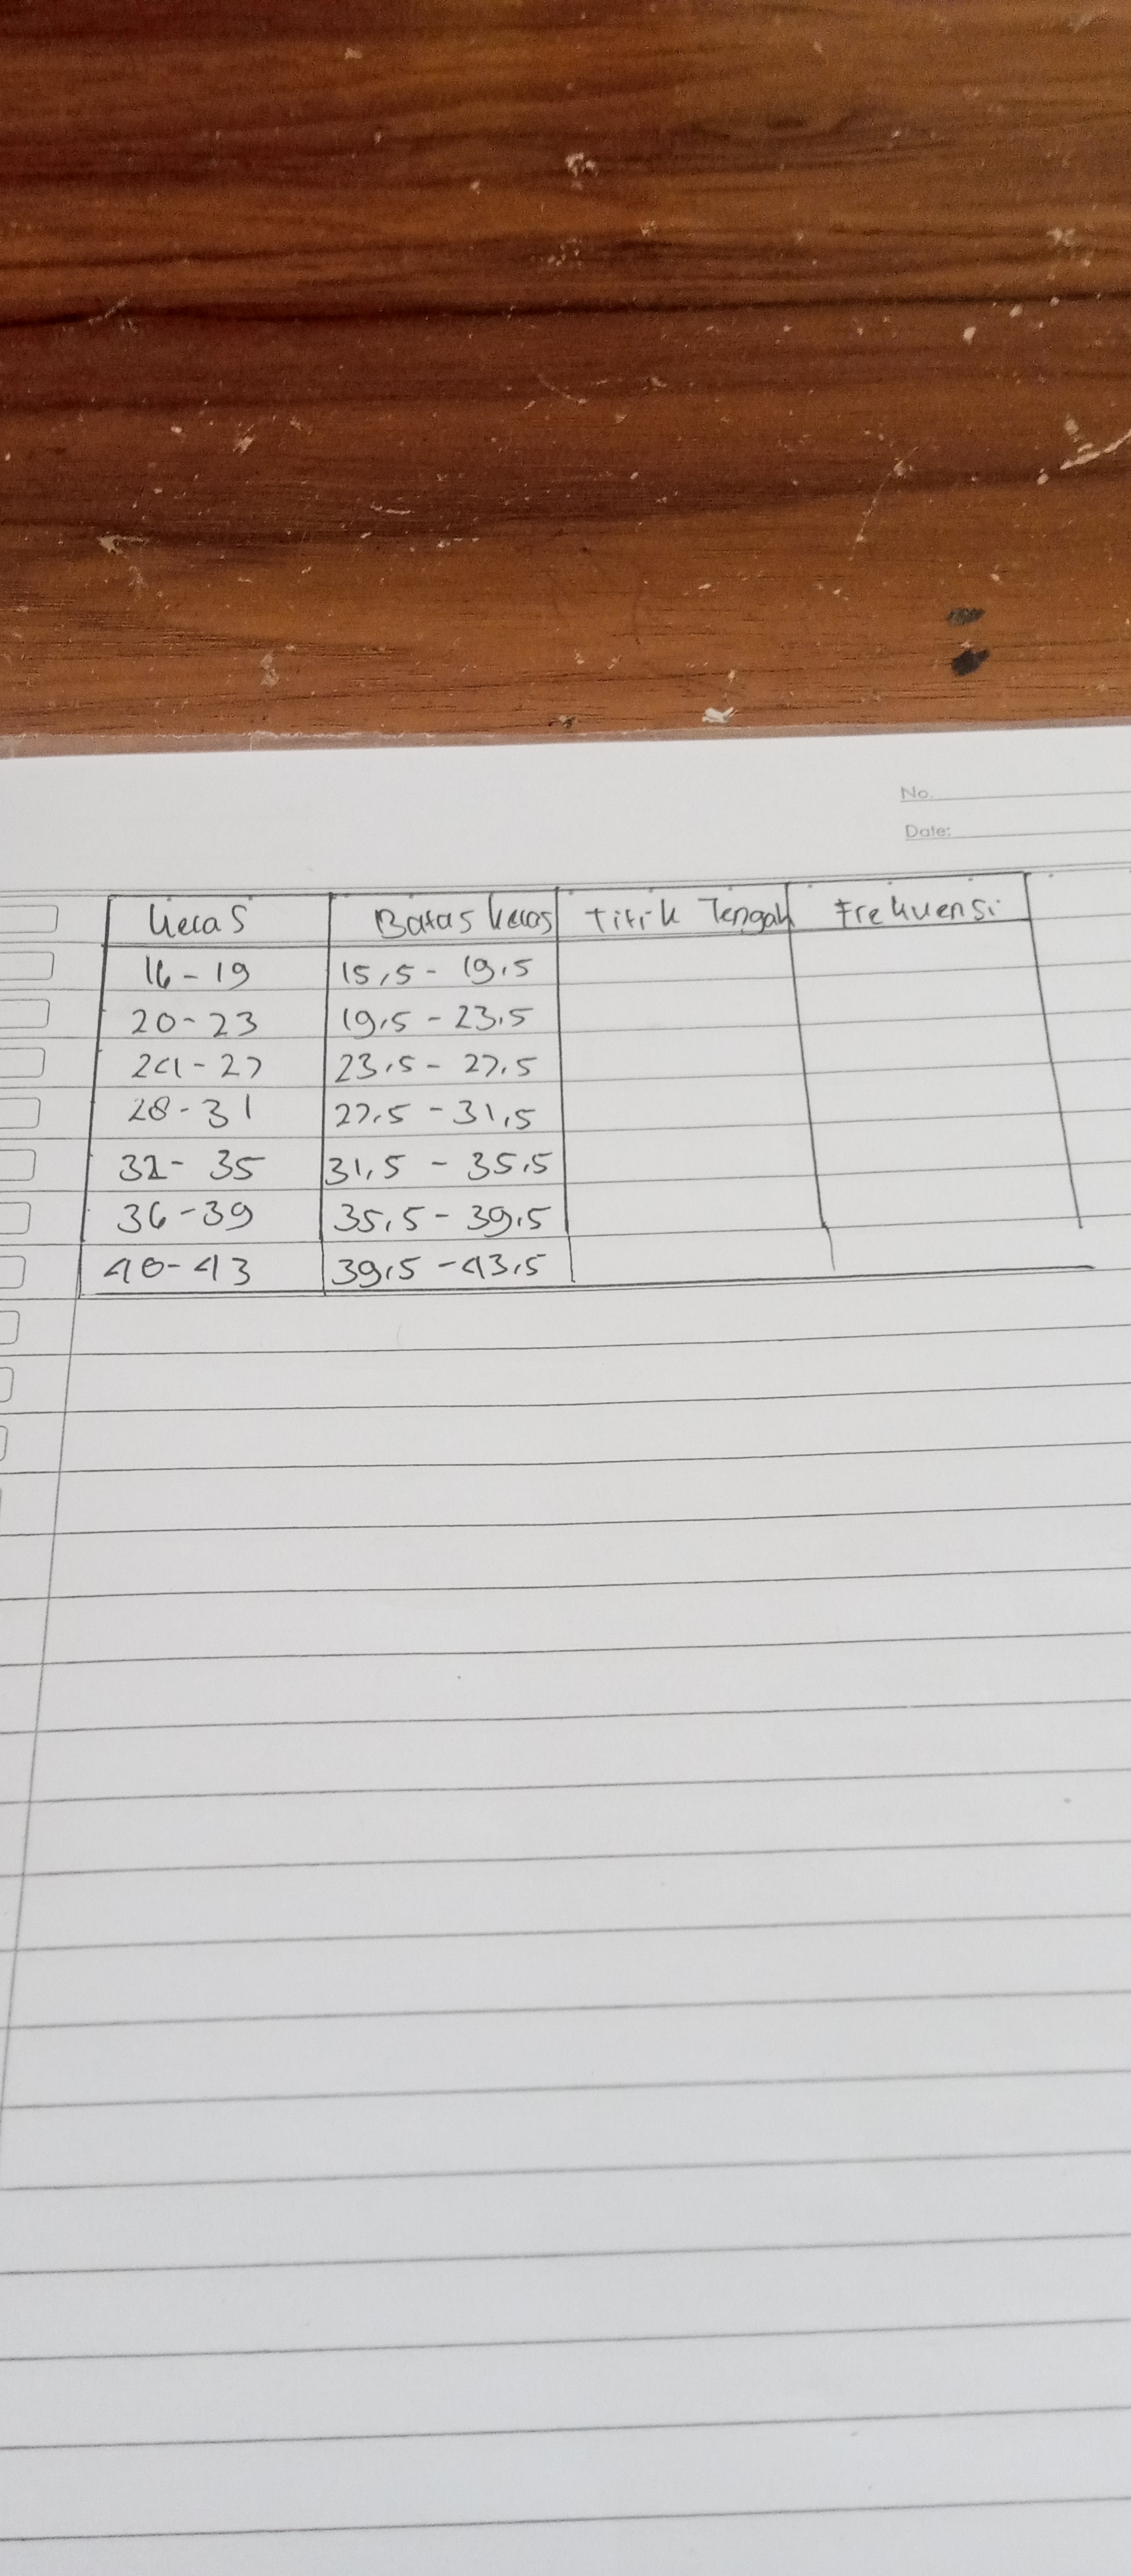 No.
Date:
Kelas Batas kelas Titik Tengah Frekuensi
16-19 15,5 - 19,5
20-23 19,5 - 23,5
24-27 23,5 - 27,5
28-31 27,5 - 31,5
32-35 31,5 - 35,5
36-39 35,5 - 39,5
40-43 39,5 - 43,5